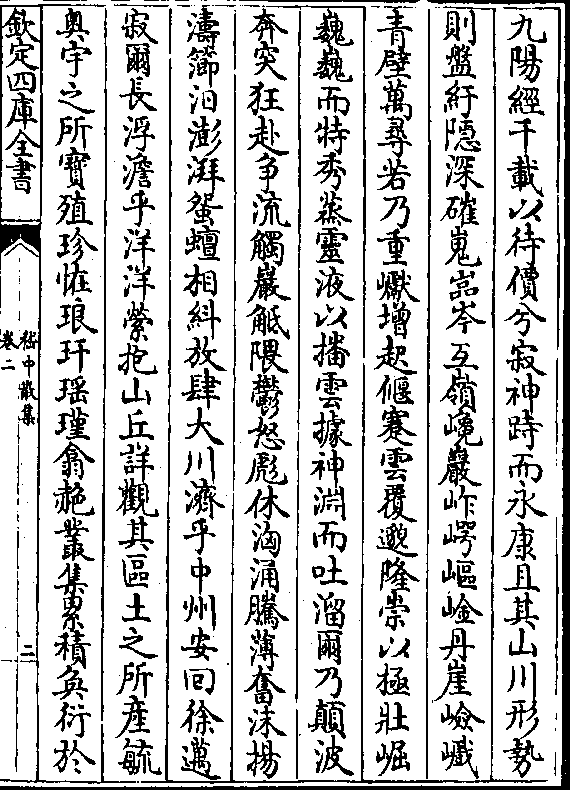 九陽經千載以待價兮寂神跱而永康且其山川形勢
則盤紆隱深磪嵬岑嵓互嶺巉巖岞崿嶇崯丹崖嶮巇
青壁萬尋若乃重巘增起偃蹇雲覆邈隆崇以極壯崛
巍巍而特秀蒸靈液以播雲據神淵而吐溜爾乃顛波
奔突狂赴爭流觸巖觝隈鬱怒彪休洶涌騰薄奮沫揚
濤瀄汩澎湃蜿蟺相糾放肆大川濟乎中州安回徐邁
寂爾長浮澹乎洋洋縈抱山丘詳觀其區土之所產毓
奥宇之所寶殖珍怪琅玕瑶瑾翕赩叢集累積奐衍於
欽定四庫全書
嵇中散集
卷二
二